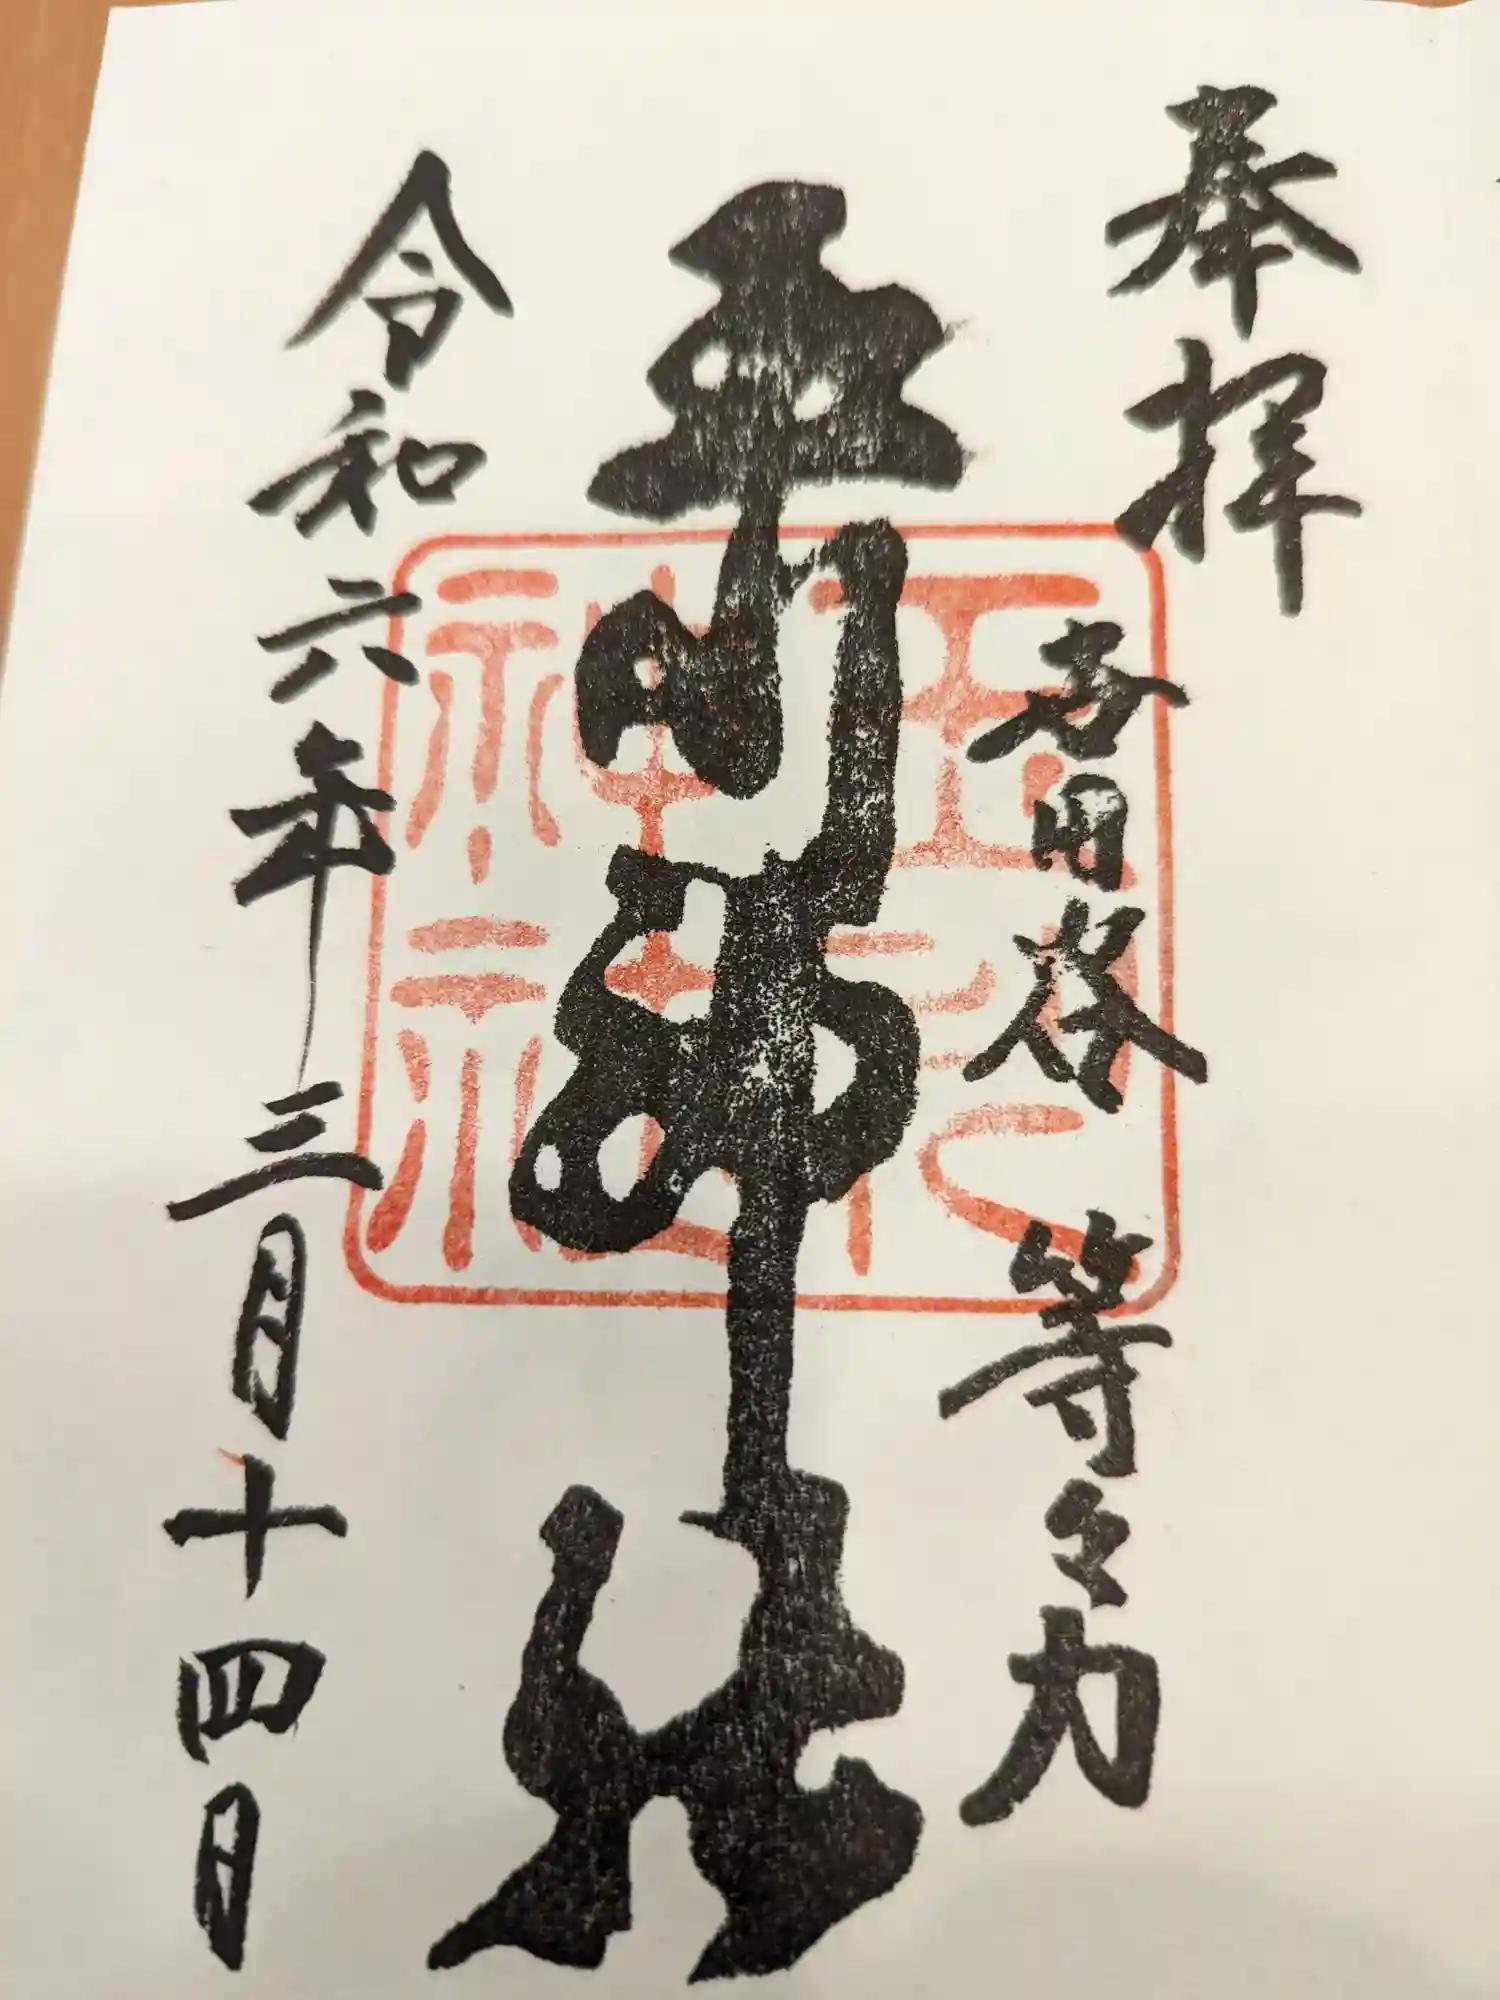 奉拝
世田谷 等々力
玉川神社
令和六年三月十四日